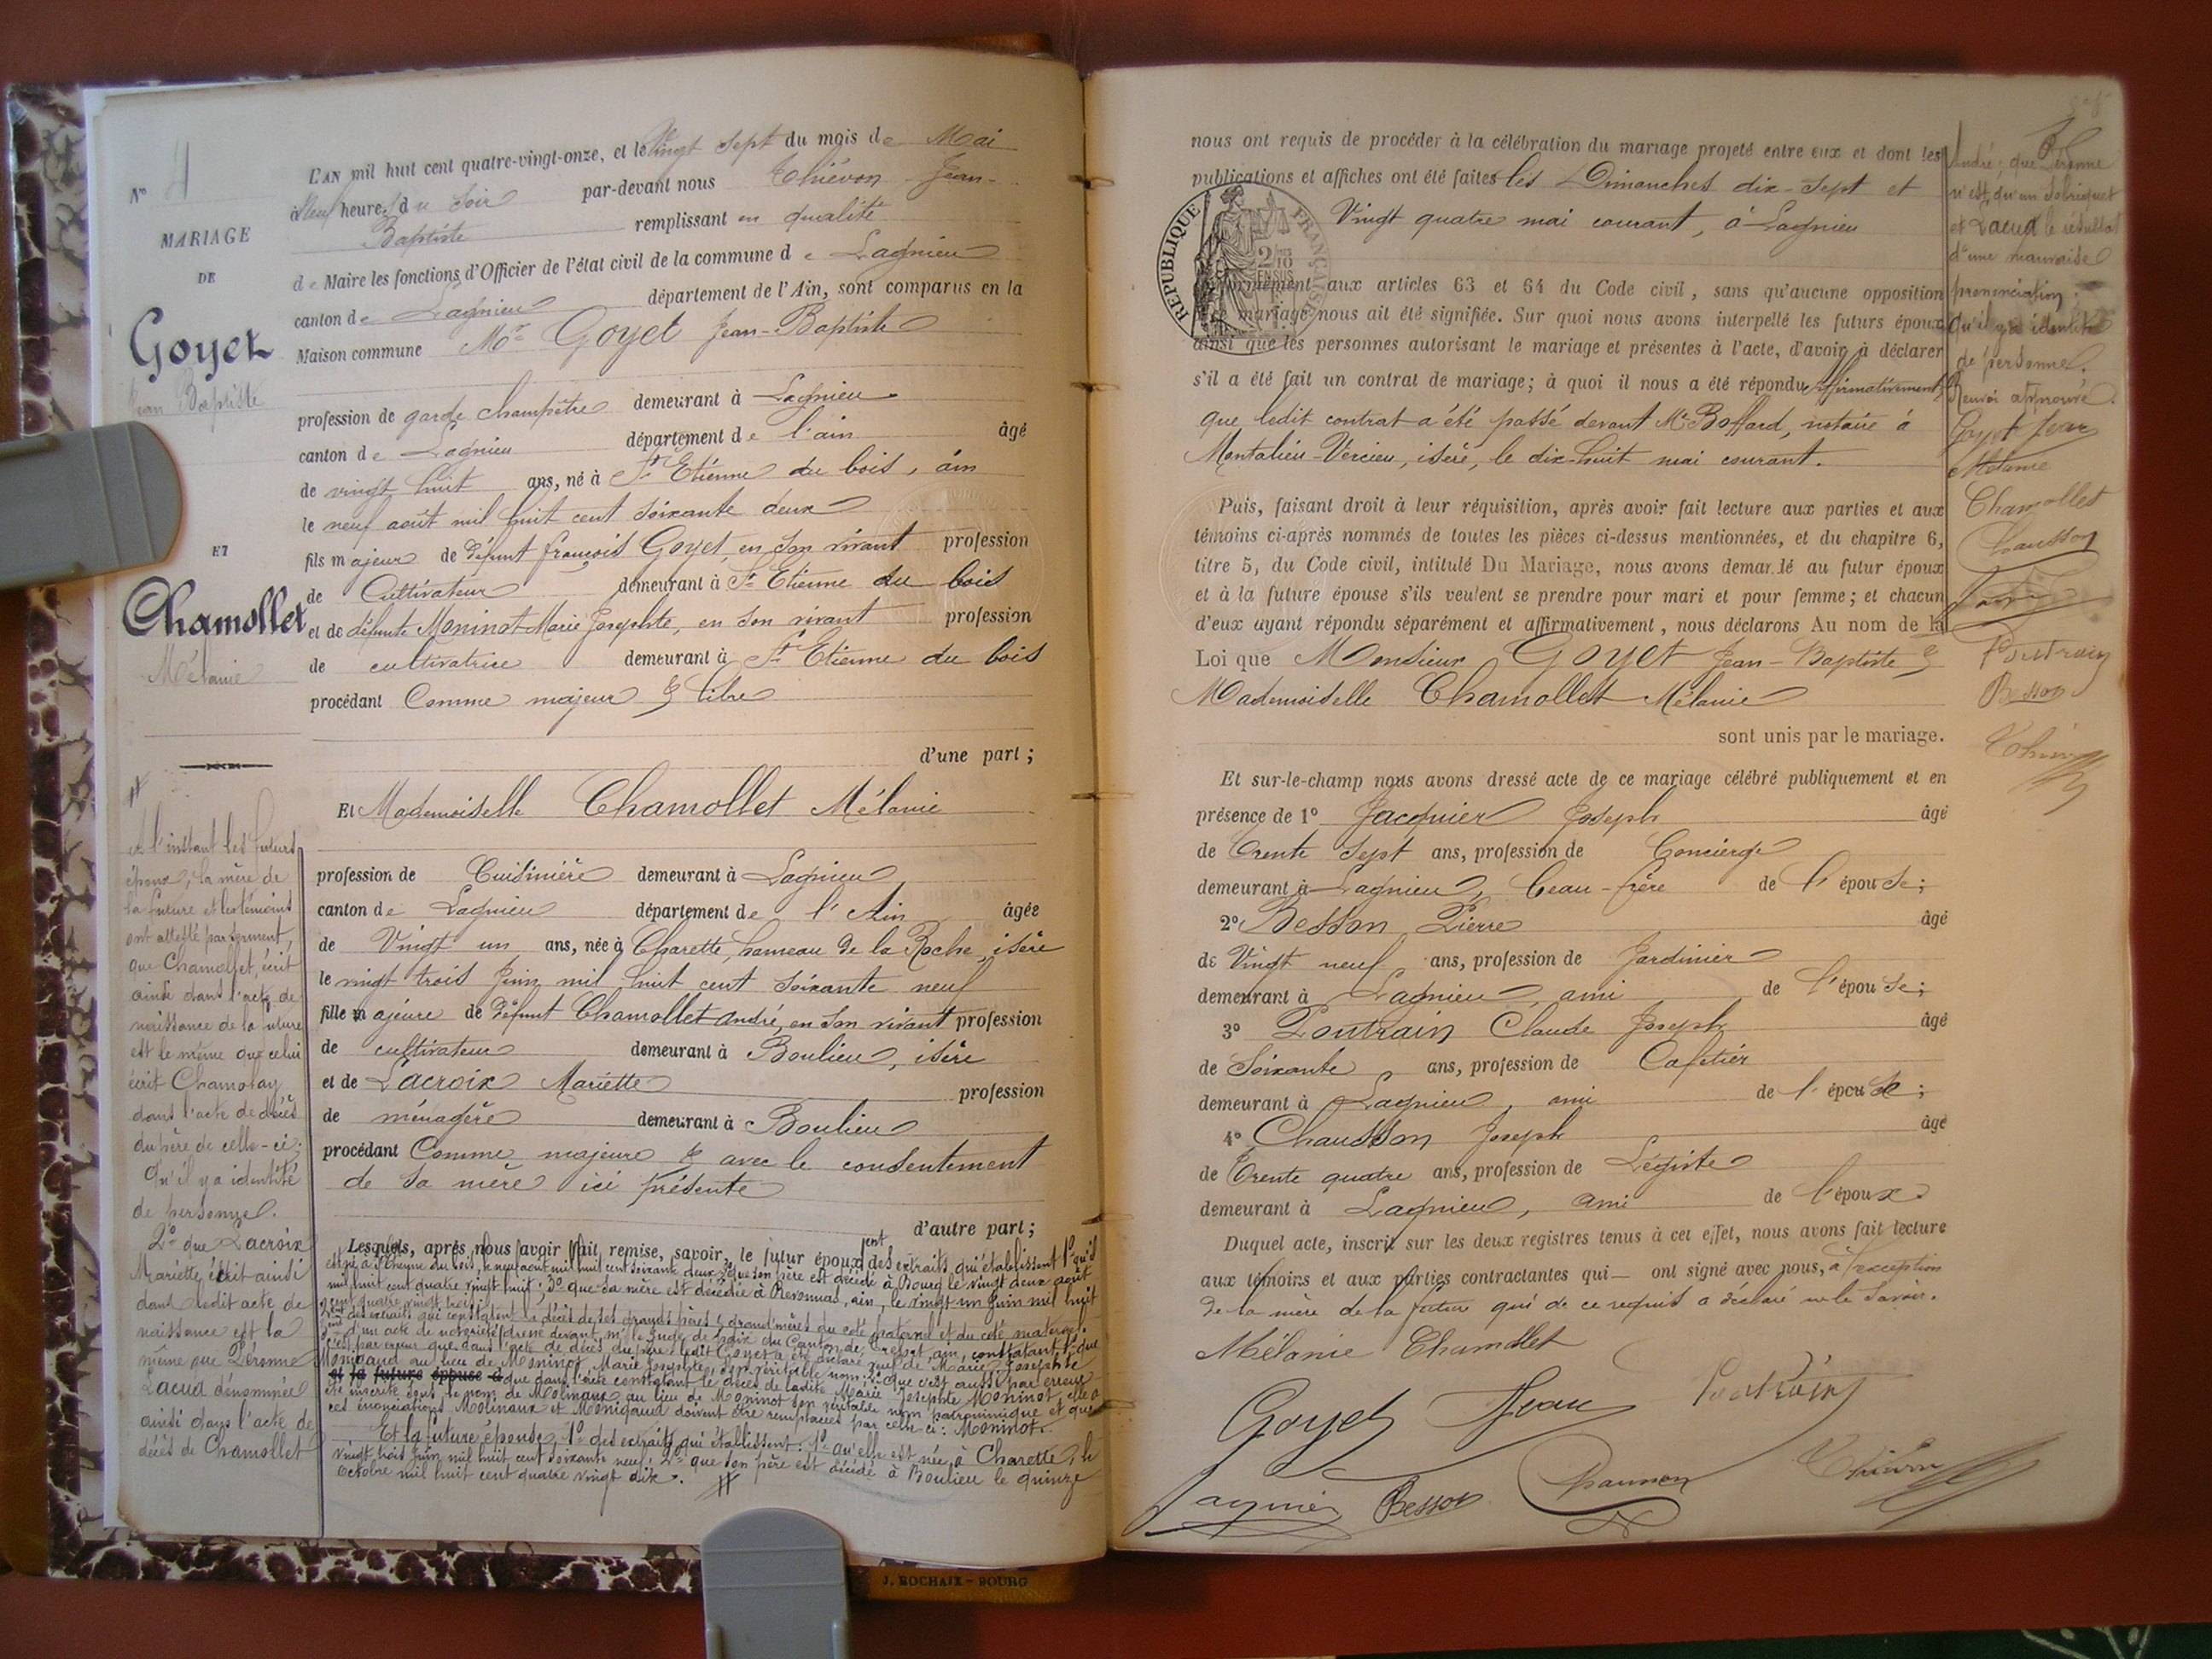 N° 4
MARIAGE
DE
Goyet
Jean Baptiste
ET
Chamollet
Mélanie
L'AN mil huit cent quatre-vingt-onze, et le Vingt sept du mois de Mai
à neuf heures du soir par-devant nous Thiévon Jean-
Baptiste remplissant en qualité
de Maire les fonctions d'Officier de l'état civil de la commune de Lagnieu
canton de Lagnieu département de l'Ain, sont comparus en la
Maison commune Mr Goyet Jean-Baptiste
profession de garde champêtre demeurant à Lagnieu
canton de Lagnieu département de l'ain âgé
de vingt huit ans, né à St Etienne du bois, ain
le neuf août mil huit cent soixante deux
fils majeur de défunt françois Goyet, en son vivant profession
de Cultivateur demeurant à St Etienne du bois
et de défunte Moninot Marie Josephte, en son vivant profession
de cultivatrice demeurant à St Etienne du bois
procédant Comme majeur & libre
d'une part ;
Et Mademoiselle Chamollet Mélanie
profession de Cuisinière demeurant à Lagnieu
canton de Lagnieu département de l'Ain âgée
de Vingt un ans, née à Charette, hameau de la Roche, isère
le vingt trois Juin mil huit cent soixante neuf
fille majeure de défunt Chamollet André, en son vivant profession
de cultivateur demeurant à Boulieu, isère
et de Lacroix Mariette profession
de ménagère demeurant à Boulieu
procédant Comme majeure & avec le consentement
de sa mère ici présente
d'autre part ;
Lesquels, après nous avoir fait remise, savoir, le futur époux des extraits qui établissent 1° qu'il
est né à St Etienne du bois, le neuf août mil huit cent soixante deux ; 2° que son père est décédé à Bourg le vingt deux août
mil huit cent quatre vingt huit ; 3° que sa mère est décédée à Revonnas, ain, le vingt un Juin mil huit
cent quatre vingt trois ;
des extraits qui constatent le décès de ses grands pères & grand'mères du coté paternel et du coté maternel
d'un acte de notoriété dressé devant Mr le Juge de paix du Canton de Ceyzeriat, ain, constatant 1° que
c'est par erreur que dans l'acte de décès du père ledit Goyet a été déclaré veuf de Marie Josephte
Monigaud au lieu de Moninot Marie Josephte, son véritable nom ; 2° que c'est aussi par erreur
et la future épouse que dans l'acte constatant le décès de ladite Marie Josephte Moninot, elle a
été inscrite sous le nom de Molinaux au lieu de Moninot son véritable nom patronimique et que
ces énonciations Molinaux et Monigaud doivent être remplacées par celle ci : Moninot.
Et la future épouse, 1° des extraits qui établissent : 1° qu'elle est née à Charette, le
vingt trois Juin mil huit cent soixante neuf ; 2° que son père est décédé à Boulieu le quinze
octobre mil huit cent quatre vingt dix.
A l'instant les futurs
époux, la mère de
la future et les témoins
ont attesté par serment,
que Chamollet, écrit
ainsi dans l'acte de
naissance de la future
est le même que celui
écrit Chamolay
dans l'acte de décès
du père de celle-ci ;
Qu'il y a identité
de personne.
2° que Lacroix
Mariette écrit ainsi
dans ledit acte de
naissance est la
même que Péronne
Lacua dénommée
ainsi dans l'acte de
décès de Chamollet
nous ont requis de procéder à la célébration du mariage projeté entre eux et dont les
publications et affiches ont été faites les Dimanches dix-sept et
Vingt quatre mai courant, à Lagnieu
REPUBLIQUE FRANÇAISE
conformément aux articles 63 et 64 du Code civil, sans qu'aucune opposition
mariage nous ait été signifiée. Sur quoi nous avons interpellé les futurs époux
ainsi que les personnes autorisant le mariage et présentes à l'acte, d'avoir à déclarer
s'il a été fait un contrat de mariage ; à quoi il nous a été répondu affirmativement,
que ledit contrat a été passé devant Me Boffard, notaire à
Montalieu-Vercieu, isère, le dix-huit mai courant.
Puis, faisant droit à leur réquisition, après avoir fait lecture aux parties et aux
témoins ci-après nommés de toutes les pièces ci-dessus mentionnées, et du chapitre 6,
titre 5, du Code civil, intitulé Du Mariage, nous avons demandé au futur époux
et à la future épouse s'ils veulent se prendre pour mari et pour femme ; et chacun
d'eux ayant répondu séparément et affirmativement, nous déclarons Au nom de la
Loi que Monsieur Goyet Jean-Baptiste &
Mademoiselle Chamollet Mélanie
sont unis par le mariage.
Et sur-le-champ nous avons dressé acte de ce mariage célébré publiquement et en
présence de 1° Jacquier Joseph âgé
de Trente sept ans, profession de Concierge
demeurant à Lagnieu, beau-frère de l'épouse ;
2° Besson Pierre âgé
de Vingt neuf ans, profession de Jardinier
demeurant à Lagnieu, ami de l'épouse ;
3° Poutrain Claude Joseph âgé
de Soixante ans, profession de Cafetier
demeurant à Lagnieu, ami de l'épouse ;
4° Chausson Joseph âgé
de Trente quatre ans, profession de Légiste
demeurant à Lagnieu, ami de l'époux.
Duquel acte, inscrit sur les deux registres tenus à cet effet, nous avons fait lecture
aux témoins et aux parties contractantes qui ont signé avec nous, à l'exception
de la mère de la future qui de ce requis a déclaré ne le savoir.
Mélanie Chamollet
Goyet Jean Poutrain
Jacquier Besson Chausson Thiévon
André ; que Péronne
n'est qu'un sobriquet
et Lacua le résultat
d'une mauvaise
prononciation ;
Qu'il y a identité
de personne.
Renvoi approuvé.
Goyet Jean
Mélanie
Chamollet
Chausson
Poutrain
Besson
Thiévon
J. ROCHAIX - BOURG